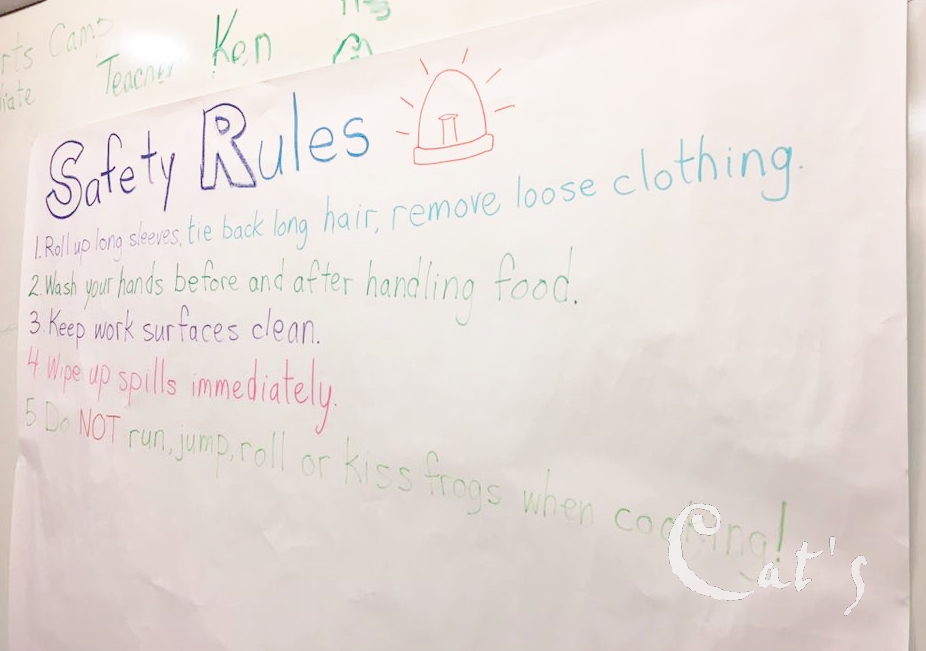 Camp
Teacher Ken
Safety Rules
1. Roll up long sleeves, tie back long hair, remove loose clothing.
2. Wash your hands before and after handling food.
3 Keep work surfaces clean.
4 Wipe up spills immediately.
5 Do NOT run, jump, roll or kiss frogs when cooking!
Cat's